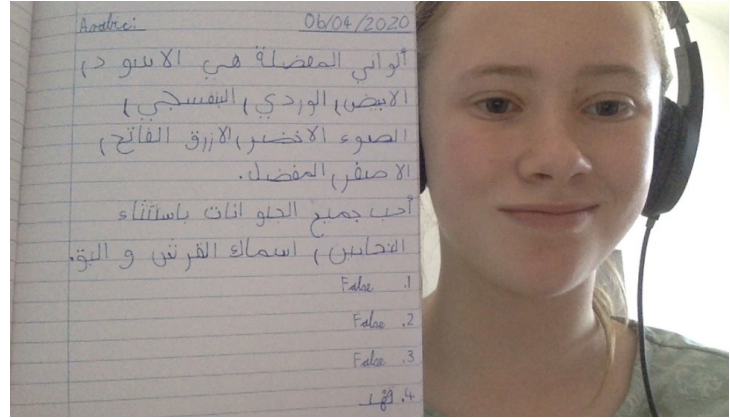 Arabic:
06/04/2020
ألواني المفضلة هي الاسود،
الابيض، الوردي، البنفسجي،
الضوء الاخضر، الازرق الفاتح،
الاصفر، المفضل.
أحب جميع الحلوانات باستثناء
اسماك القرش و البق.
False .1
False .2
False .3
.4